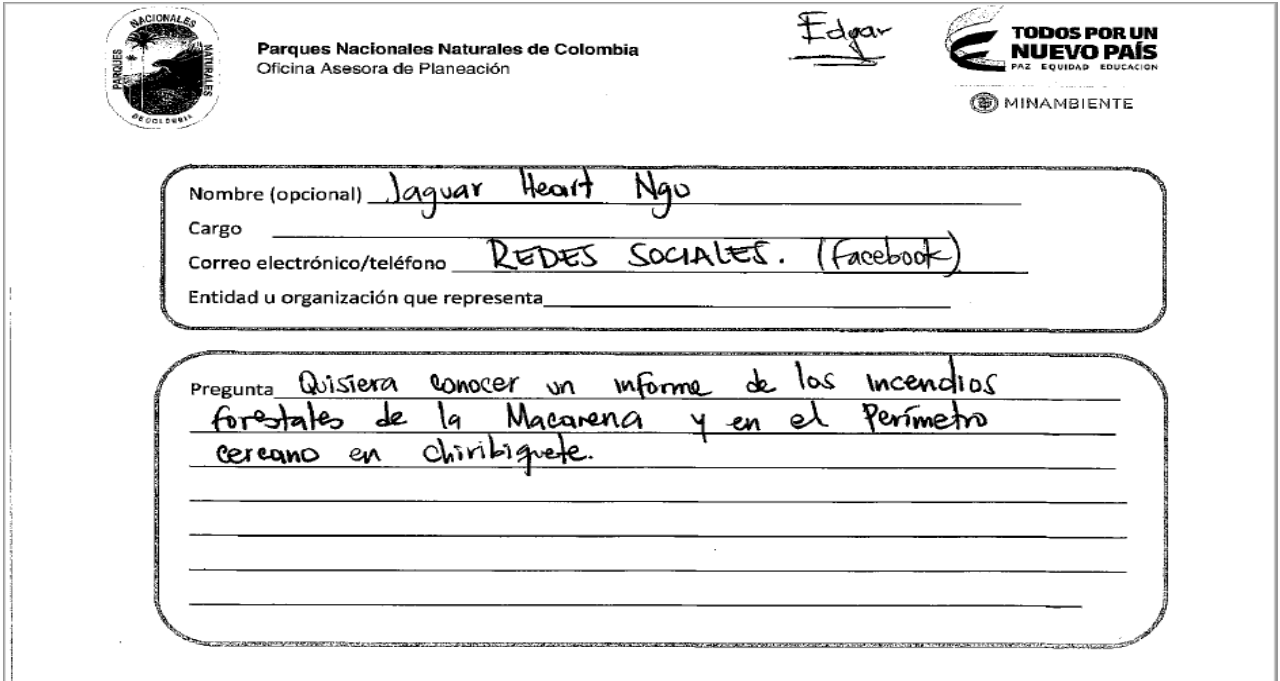 PARQUES NACIONALES NATURALES
DE COLOMBIA
Parques Nacionales Naturales de Colombia
Oficina Asesora de Planeación
Edgar
TODOS POR UN
NUEVO PAÍS
PAZ EQUIDAD EDUCACIÓN
MINAMBIENTE
Nombre (opcional) Jaguar Heart Ngo
Cargo
Correo electrónico/teléfono REDES SOCIALES. (Facebook)
Entidad u organización que representa
Pregunta Quisiera conocer un informe de los incendios
forestales de la Macarena y en el Perímetro
cercano en chiribiquete.